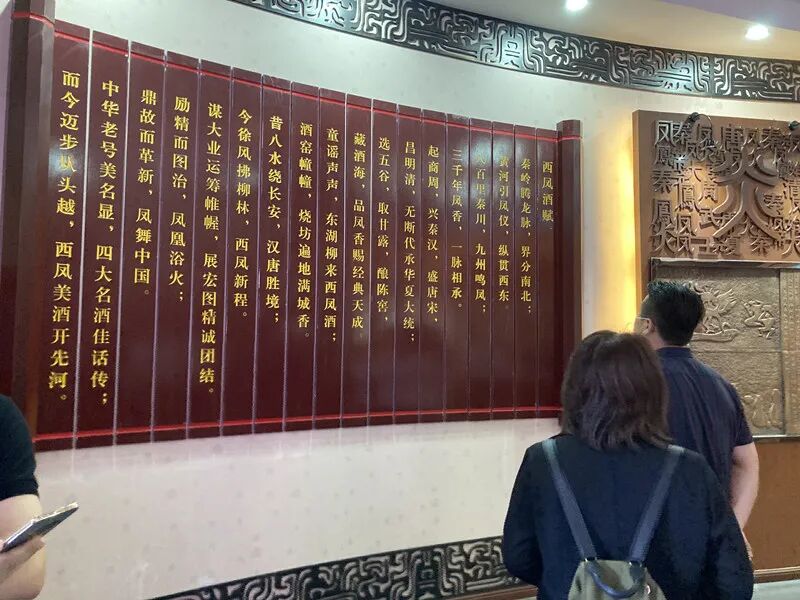 西凤酒赋
秦岭腾龙脉，界分南北；
黄河引凤仪，纵贯西东。
八百里秦川，九州鸣凤；
三千年凤香，一脉相承。
起商周，兴秦汉，盛唐宋，
昌明清，无断代承华夏大统；
选五谷，取甘露，酿陈窖，
藏酒海，品凤香赐经典天成。
童谣声声，东湖柳来西凤酒；
酒窑幢幢，烧坊遍地满城香。
昔八水绕长安，汉唐胜境；
今徐风拂柳林，西凤新程。
谋大业运筹帷幄，展宏图精诚团结。
励精而图治，凤凰浴火；
鼎故而革新，凤舞中国。
中华老号美名显，四大名酒佳话传；
而今迈步从头越，西凤美酒开先河。